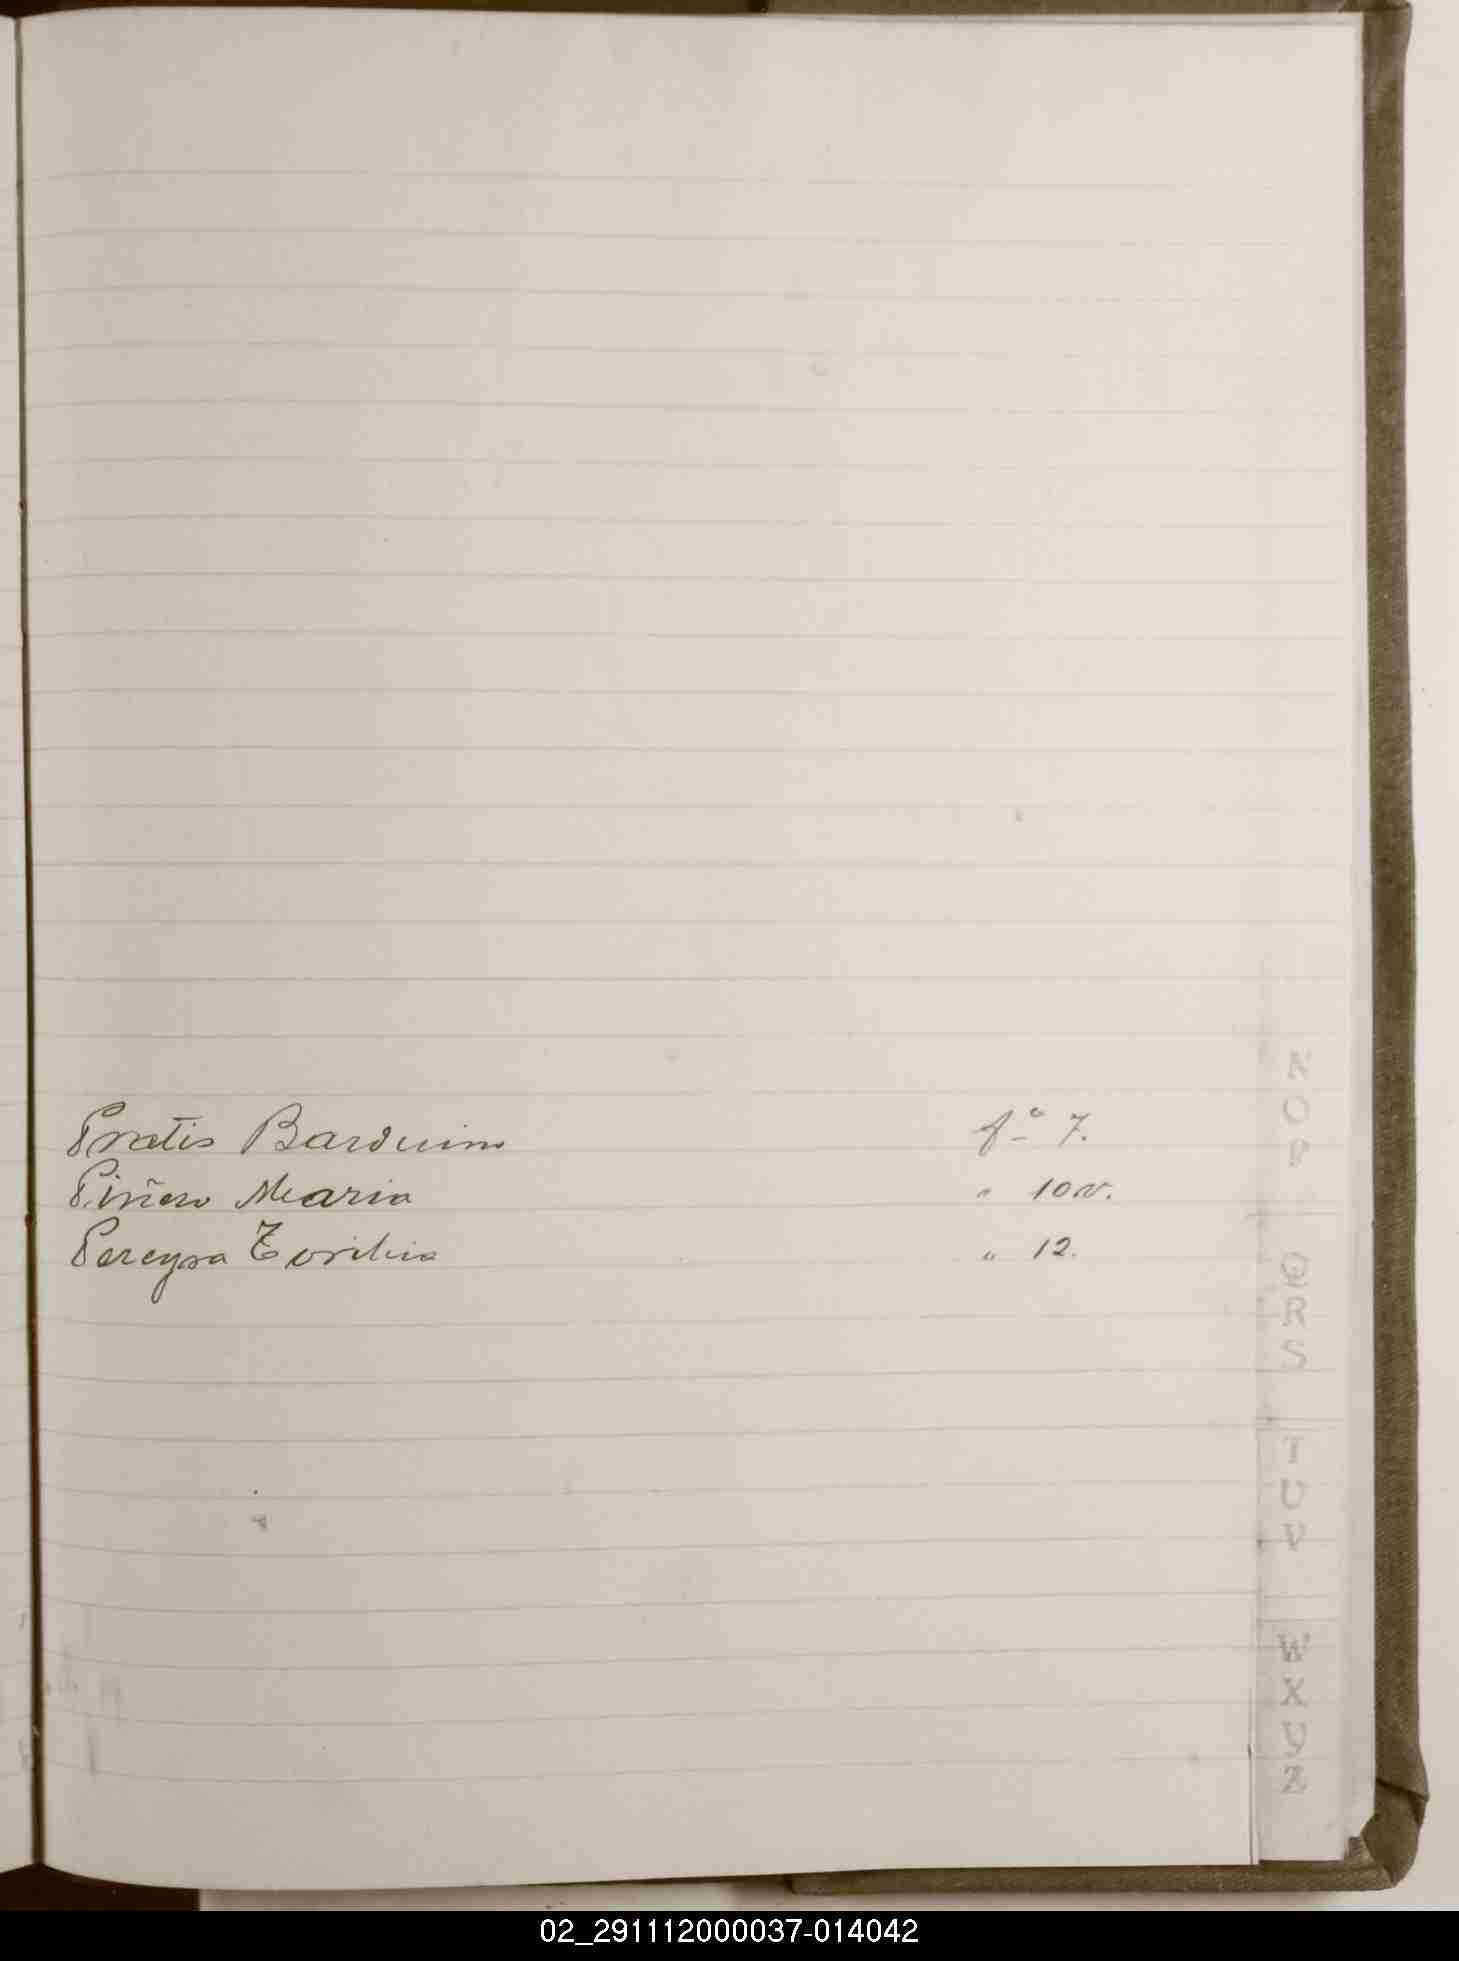 Pratis Barduino fº 7.
Piñero Maria " 10 v.
Pereyra Toribia " 12.
N
O
P
Q
R
S
T
U
V
W
X
Y
Z
02_291112000037-014042